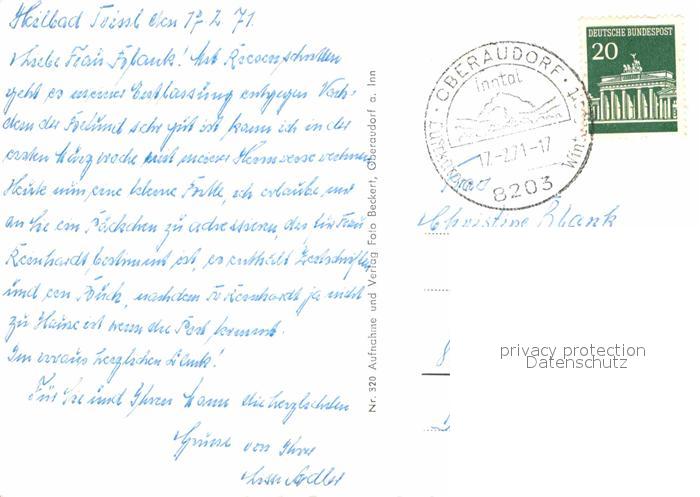 Heilbad Trissl den 17.2.71.
Liebe Frau Blank! Mit Riesenschritten
geht es meiner Entlassung entgegen. Nach-
dem der Befund sehr gut ist kann ich in der
ersten Märzwoche mit meiner Heimreise rechnen
Heute nun eine kleine Bitte, ich erlaube mir
an Sie ein Päckchen zu adressieren, das für Frau
Reinhardt bestimmt ist, es enthält Zeitschriften
und ein Buch, nachdem Fr. Reinhardt ja nicht
zu Hause ist wenn die Post kommt.
Im voraus herzlichen Dank!
Für Sie und Ihren Mann die herzlichsten
Grüsse von Ihrer
Adler
Nr. 320 Aufnahme und Verlag Foto Beckert, Oberaudorf a. Inn
OBERAUDORF
Inntal
17.-2.71-17
8203
DEUTSCHE BUNDESPOST
20
Frau
Christine Blank
privacy protection
Datenschutz